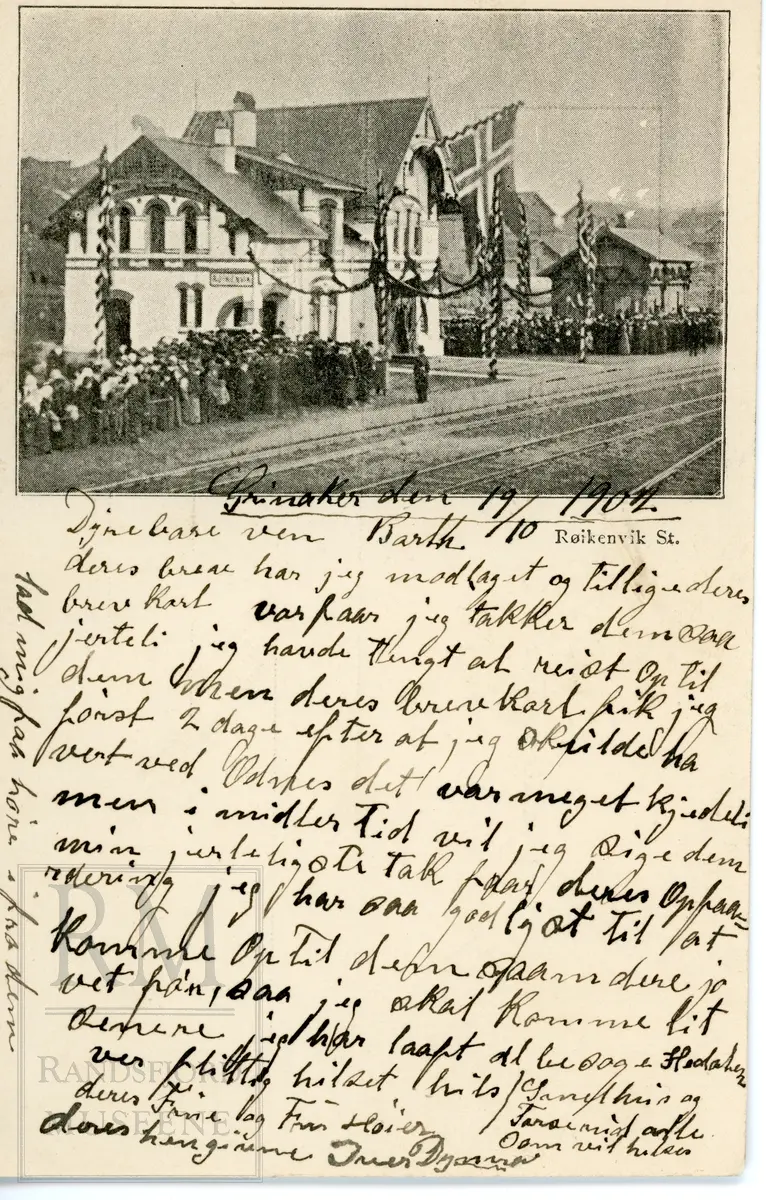 RØIKENVIK
Grinaker den 19/10 1902
Røikenvik St.
Dyrebare ven Barth
deres breve har jeg modtaget og tillige deres
brevkort vorfaar jeg takker dem saa
jerteli jeg havde tengt at reist op til
dem men deres brevkort fik jeg
først 2 dage efter at jeg skulde ha
vert ved Odnes det var meget kjedeli
men i midlertid vil jeg sige dem
min jerteligste tak faar deres opfaa=
rdering jeg har saa god lyst til at
komme op til dem saam dere jo
vet før, saa jeg skal komme lit
senere jeg har laaft at besøge Hedalen
ver flittig hilset hils
deres Frue og Frk
deres hengivne Iver
og
alle
som vil hilses
lad mig faa høre ifra dem
RM
RANDSFJORD
MUSEENE